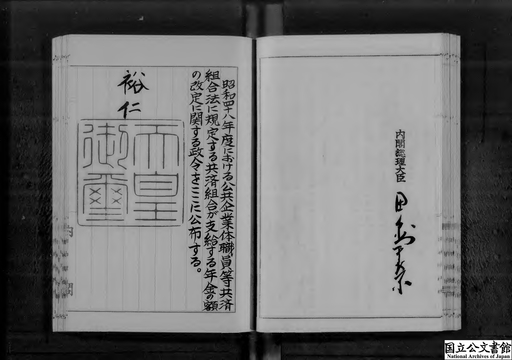 昭和四十八年度における公共企業体職員等共済
組合法に規定する共済組合が支給する年金の額
の改定に関する政令をここに公布する。
裕仁
天皇
御璽
内閣総理大臣
田中角榮
国立公文書館
National Archives of Japan